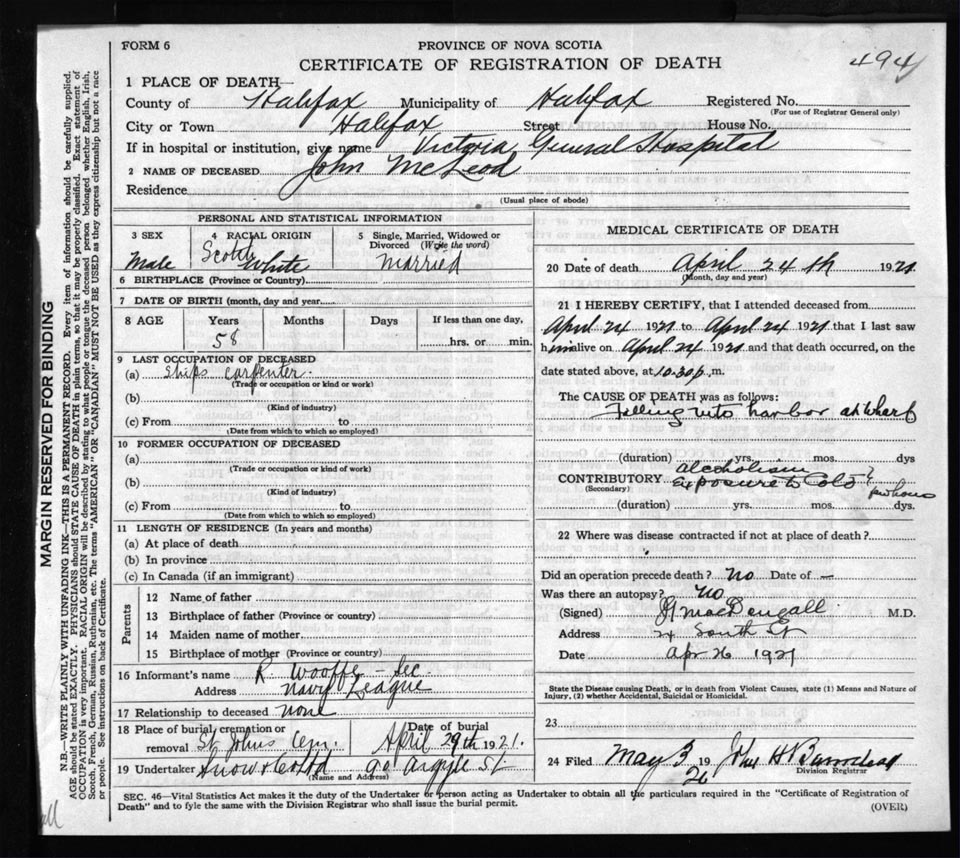 FORM 6
PROVINCE OF NOVA SCOTIA
CERTIFICATE OF REGISTRATION OF DEATH
494
1 PLACE OF DEATH—
County of Halifax Municipality of Halifax Registered No.
(For use of Registrar General only)
City or Town Halifax Street House No.
If in hospital or institution, give name Victoria General Hospital
2 NAME OF DECEASED John McLeod
Residence
(Usual place of abode)
PERSONAL AND STATISTICAL INFORMATION
3 SEX
Male
4 RACIAL ORIGIN
Scotch White
5 Single, Married, Widowed or
Divorced (Write the word)
Married
6 BIRTHPLACE (Province or Country)
7 DATE OF BIRTH (month, day and year)
8 AGE Years Months Days If less than one day,
58 hrs. or min.
9 LAST OCCUPATION OF DECEASED
(a) Ships Carpenter.
(Trade or occupation or kind or work)
(b)
(Kind of industry)
(c) From to
(Date from which to which so employed)
10 FORMER OCCUPATION OF DECEASED
(a)
(Trade or occupation or kind or work)
(b)
(Kind of industry)
(c) From to
(Date from which to which so employed)
11 LENGTH OF RESIDENCE (In years and months)
(a) At place of death
(b) In province
(c) In Canada (if an immigrant)
Parents
12 Name of father
13 Birthplace of father (Province or country)
14 Maiden name of mother
15 Birthplace of mother (Province or country)
16 Informant's name R. Wooffe - Sec
Address Navy League
17 Relationship to deceased none
18 Place of burial, cremation or
removal St Johns Cem.
Date of burial
April 29th 1921.
19 Undertaker Snow & Co Ltd 90 Argyle St.
(Name and Address)
MEDICAL CERTIFICATE OF DEATH
20 Date of death April 24th 1921
(Month, day and year)
21 I HEREBY CERTIFY, that I attended deceased from
April 24 1921 to April 24 1921 that I last saw
him alive on April 24 1921 and that death occurred, on the
date stated above, at 10.30 p.m.
The CAUSE OF DEATH was as follows:
Falling into harbor at wharf
(duration) yrs. mos. dys
CONTRIBUTORY alcoholism
(Secondary) Exposure to Cold ? few hours
(duration) yrs. mos. dys.
22 Where was disease contracted if not at place of death?
Did an operation precede death? No Date of —
Was there an autopsy? No
(Signed) MacDougall M.D.
Address 24 South St
Date Apr 26 1921
State the Disease causing Death, or in death from Violent Causes, state (1) Means and Nature of
Injury, (2) whether Accidental, Suicidal or Homicidal.
23
24 Filed May 3 19 21
Division Registrar
SEC. 46—Vital Statistics Act makes it the duty of the Undertaker or person acting as Undertaker to obtain all the particulars required in the "Certificate of Registration of
Death" and to fyle the same with the Division Registrar who shall issue the burial permit.
(OVER)
MARGIN RESERVED FOR BINDING
N.B.—WRITE PLAINLY WITH UNFADING INK—THIS IS A PERMANENT RECORD. Every item of information should be carefully supplied.
AGE should be stated EXACTLY. PHYSICIANS should STATE CAUSE OF DEATH in plain terms, so that it may be properly classified. Exact statement of
OCCUPATION is very important. RACIAL ORIGIN will be described by stating to what people or tongue the deceased person belonged whether English, Irish,
Scotch, French, German, Russian, Ruthenian, etc. The terms "AMERICAN" or "CANADIAN" MUST NOT BE USED as they express citizenship but not a race
or people. See instructions on back of Certificate.